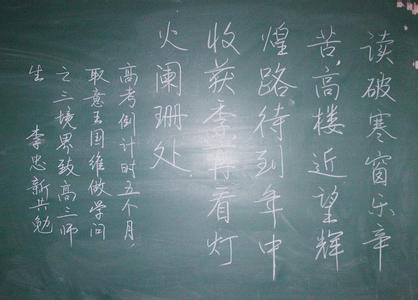 读破寒窗乐辛
苦高楼近望辉
煌路待到年中
收获季再看灯
火阑珊处
高考倒计时五个月，
取意王国维做学问
之三境界致高三师
生 李忠新共勉